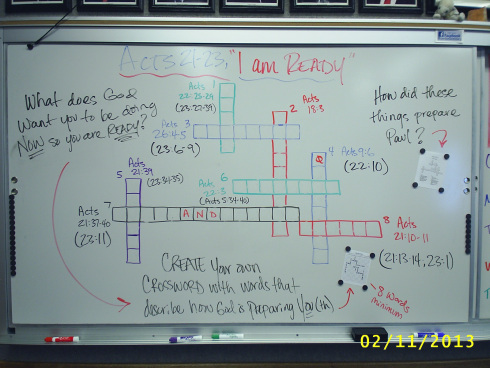 ACTS 21-23, "I am READY"
What does God
Want you to be doing
NOW so you are READY?
How did these
things prepare
Paul?
Acts 1
22:25-29
(23:27-39)
2 Acts
18:3
Acts 3
26:4-5
(23:6-9)
4 Acts 9:6
(22:10)
5 Acts
21:39
(23:34-35)
Acts 6
22:3
(Acts 5:34-40)
7
Acts
21:37-40
(23:11)
AND
8 Acts
21:10-11
(21:13-14, 23:1)
CREATE Your own
CROSSWORD with words that
describe how God is preparing You (th)
8 words
minimum
02/11/2013